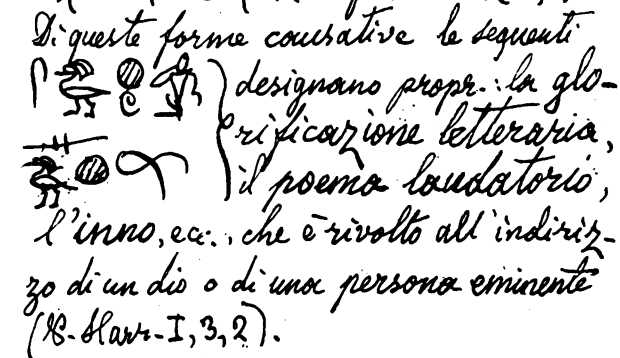 Di queste forme causative le seguenti
designano propr.: la glo-
rificazione letteraria,
il poema laudatorio,
l'inno, ecc., che è rivolto all'indiriz-
zo di un dio o di una persona eminente
(P. Harr. I, 3, 2).